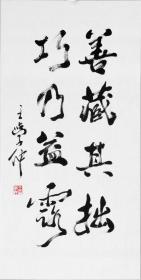 善藏其拙
巧乃益露
王学仲